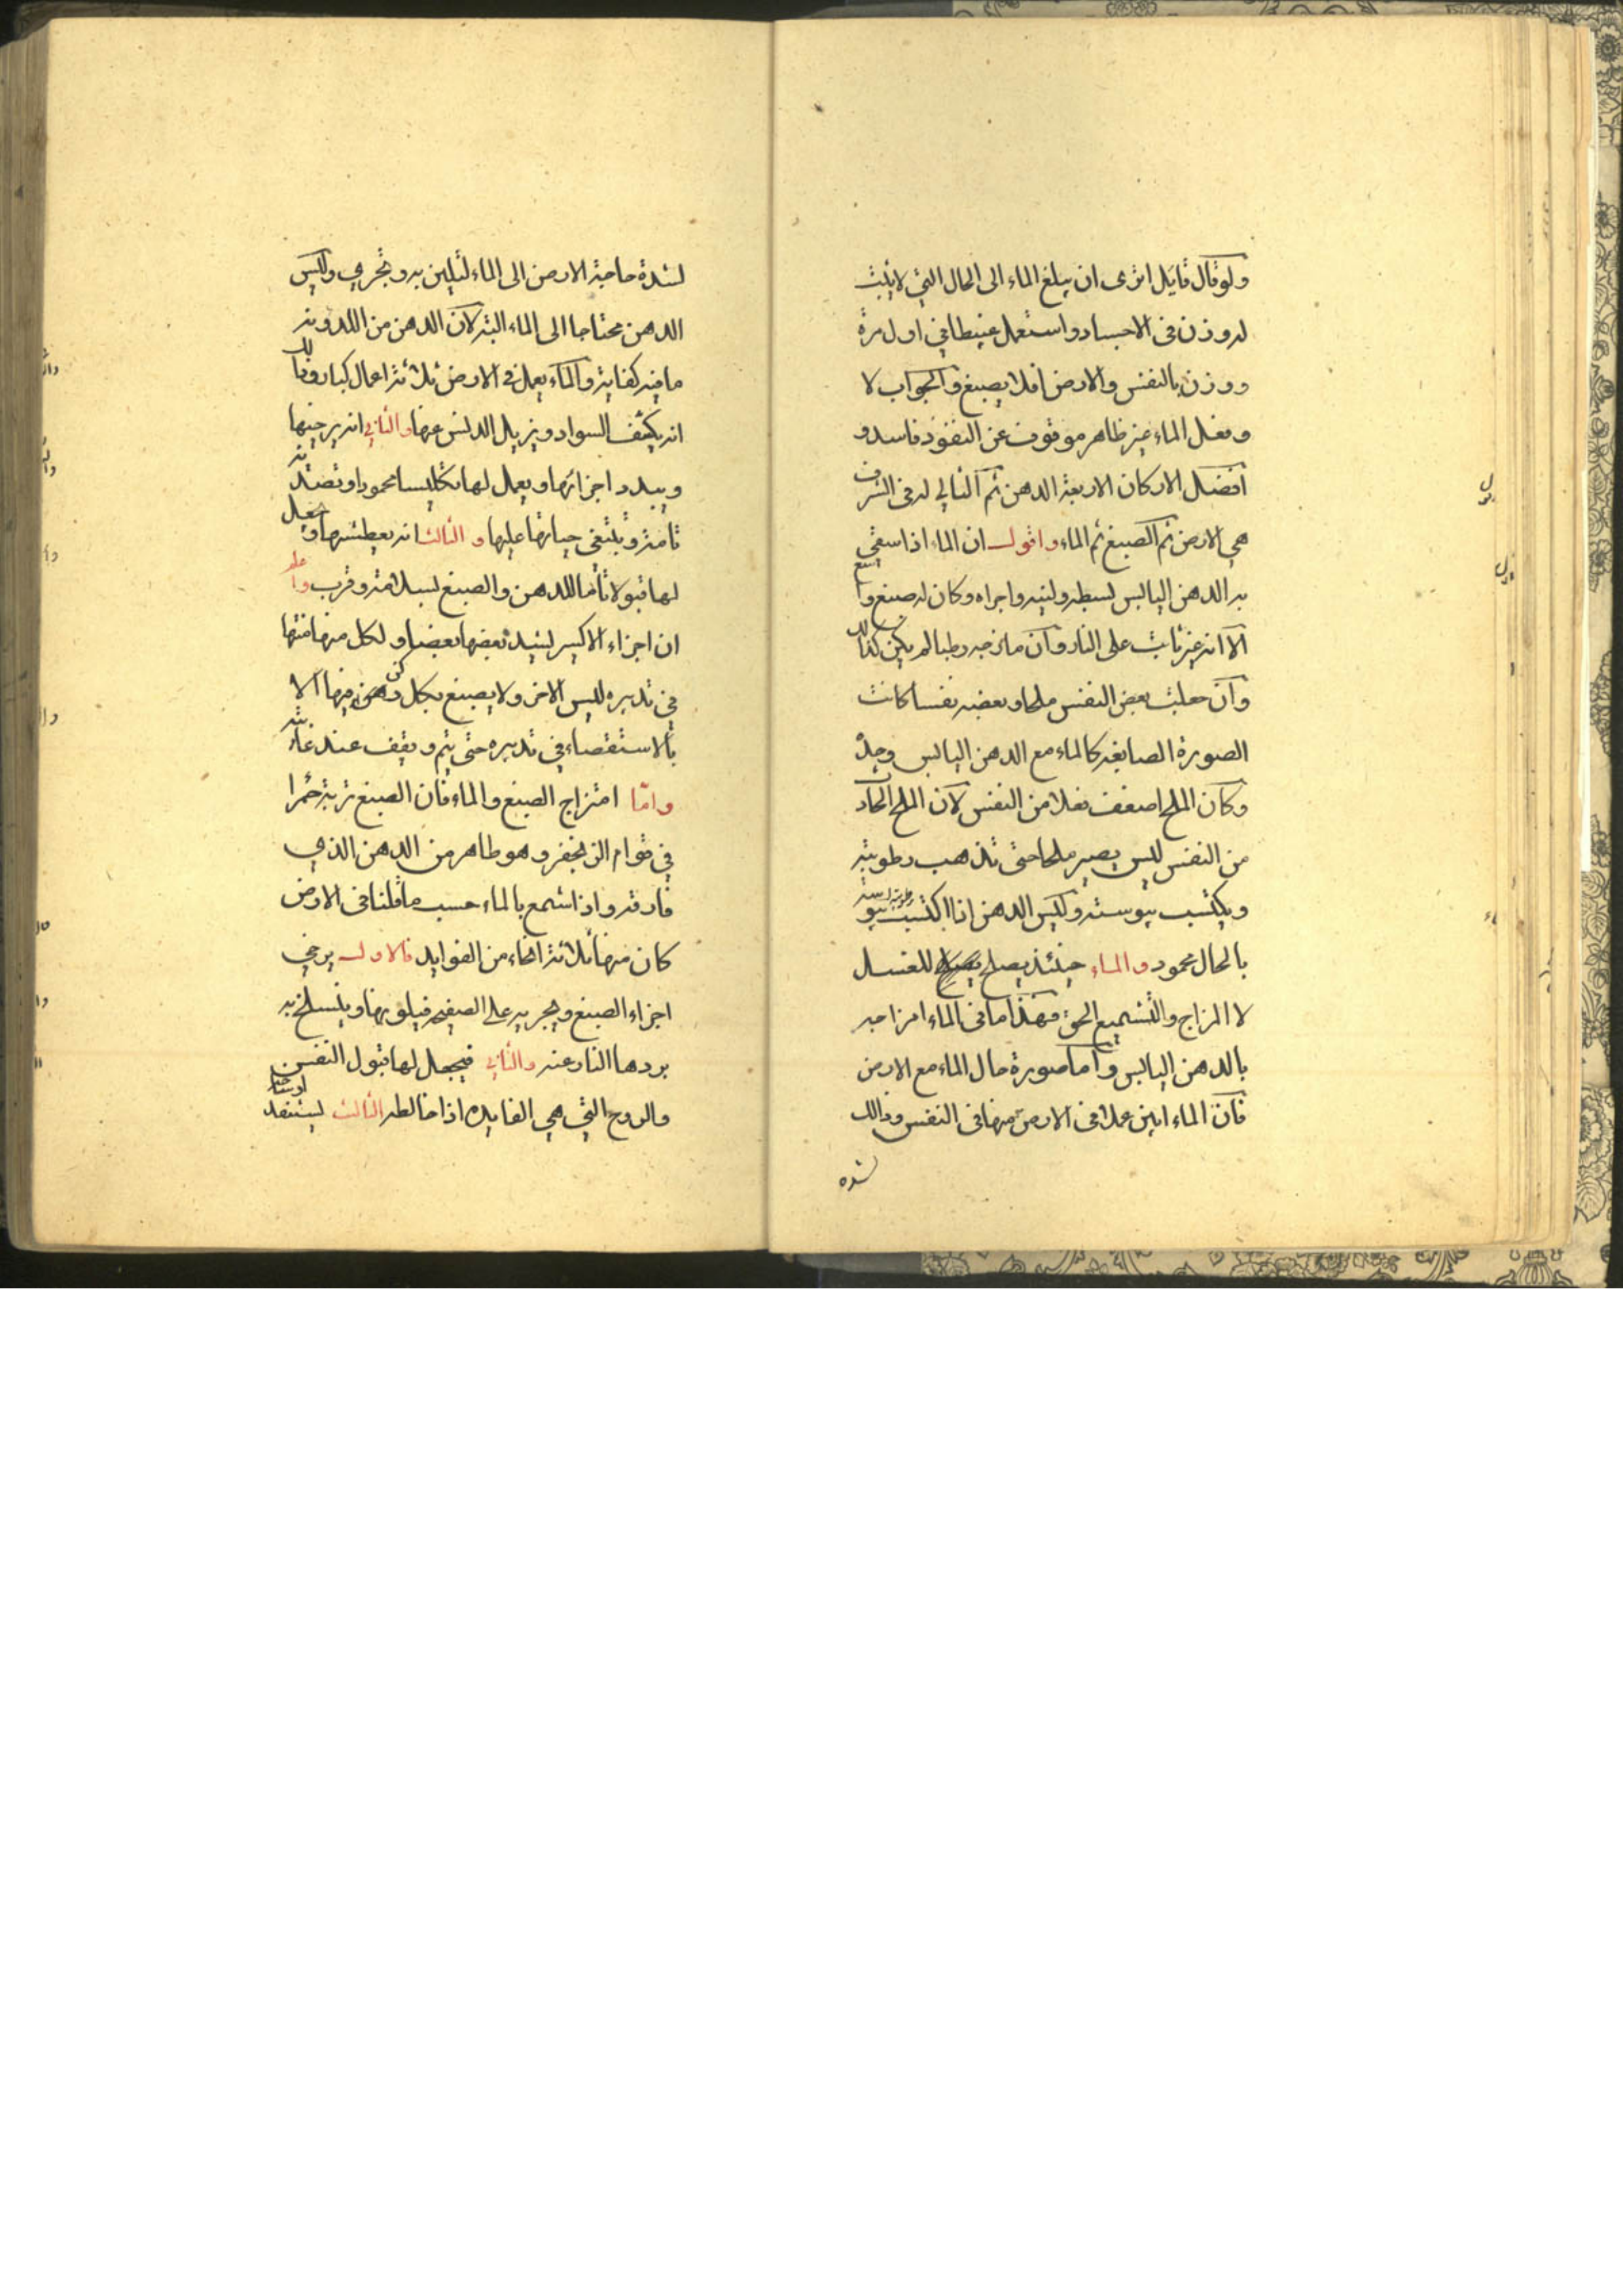 ولو قال قايل اترى ان يبلغ الماء الى الحال التي لا يثبت
له وزن في الاجساد واستعمل عبيطا في اول مرة
ووزن بالنفس والارض افلا يصبغ والجواب لا
وفعل الماء غير ظاهر موقوف عن النفوذ فاسد و
افضل الاركان الاربعة الدهن ثم التالي له في الشرف
هي الارض ثم الصبغ ثم الماء واقول ان الماء اذا سقي
به الدهن اليابس بسطه ولينه واجراه وكان له صبغ واسع
الا انه غير ثابت على النار وان مازجه رطبا لم يكن كذلك
وان جعلت بعض النفس ملحا وبعضه نفسا كانت
الصورة الصابغه كالماء مع الدهن اليابس وجد
وكان الملح اضعف فعلا من النفس لان الملح الحاد
من النفس ليس يصير ملحا حتى تذهب رطوبته
ويكتسب يبوسته وليس الدهن اذا اكتسب يبوسته
بالحال محمود والماء حينئذ يصلح للغسل
لا المزاج والتشميع الحق فهذا ما في الماء امزاجه
بالدهن اليابس واما صورة حال الماء مع الارض
فان الماء ابين عملا في الارض منها في النفس وذالك
لشده
لشدة حاجة الارض الى الماء لتلين به وتجري وليس
الدهن محتاجا الى الماء البتة لان الدهن من اللدونة
ما فيه كفاية والماء يعمل في الارض ثلاثة اعمال كبار وذلك
انه يكشف السواد ويزيل الدنس عنها والثاني انه يرخيها
ويبدد اجزائها ويعمل لها تكليسا محمودا وتصدية
تامة وتبتغي حياتها عليها والثالث انه يعطشها ويجعل
لها قبولا تاما للدهن والصبغ لسلامته وقرب واعلم
ان اجزاء الاكسير ليشد بعضها بعضا ولكل منها منها
في تدبيره ليس الاخر ولا يصبغ بكل ركن منها الا
بالاستقصاء في تدبيره حتى يتم ويقف عند غايته
واما امتزاج الصبغ والماء فان الصبغ تربة حمرا
في قوام الزنجفر وهو طاهر من الدهن الذي
فارقه واذا شمع بالماء حسب ما قلنا في الارض
كان منها ثلاثة انحاء من الفوايد فالاول يرخي
اجزاء الصبغ ويجريه على الصفيحه فيلونها وينسلخ به
بردها النار عنه والثاني فيجعل لها قبول النفس
والروح التي هي الفايده اذا خالطه الثالث ليستنفد اوساخها